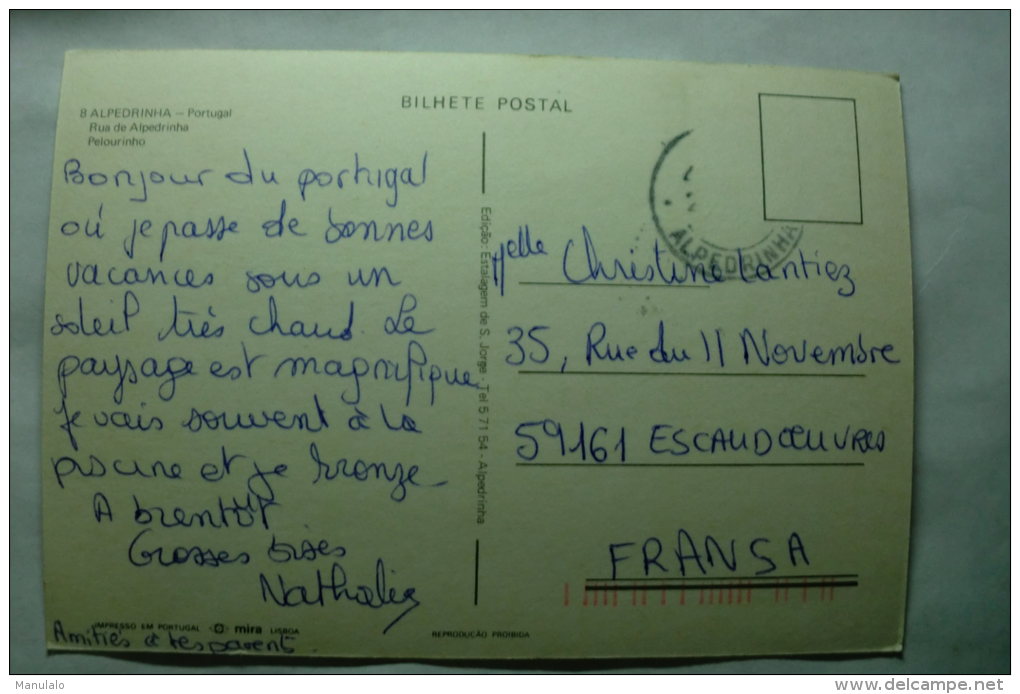 BILHETE POSTAL
8 ALPEDRINHA – Portugal
Rua de Alpedrinha
Pelourinho
Bonjour du portugal
où je passe de bonnes
vacances sous un
soleil très chaud. Le
paysage est magnifique
je vais souvent à la
piscine et je bronze
A bientôt
Grosses bises
Nathalie
Amitiés à tes parent
IMPRESSO EM PORTUGAL mira LISBOA
REPRODUÇÃO PROIBIDA
Edição: Estalagem de S. Jorge - Tel 5 71 54 - Alpedrinha
ALPEDRINHA
Melle Christine Lantiez
35, Rue du 11 Novembre
59161 ESCAUDŒUVRES
FRANSA
Manulalo
www.delcampe.net